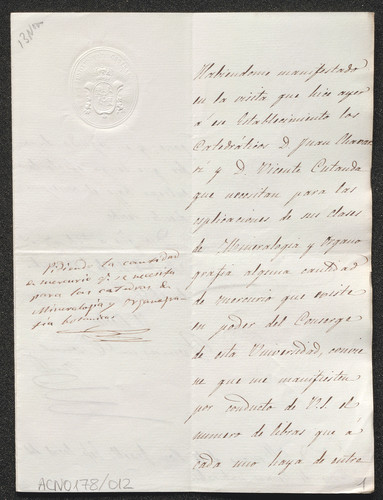 13 Nov
Habiendome manifestado
en la visita que hice ayer
á ese Establecimiento los
Catedráticos D. Juan Chavar
ri y D. Vicente Cutanda
que necesitan para las
esplicaciones de sus clases
de Mineralogia y Organo
grafia alguna cantidad
de mercurio que existe
en poder del Conserge
de esta Universidad, convie
ne que me manifiesten
por conducto de V.S. el
numero de libras que á
cada uno haya de entre
Pidiendo la cantidad
de mercurio q.e se necesita
para las catedras de
Mineralogia y organogra
fia botanica
ACN0178/012
1